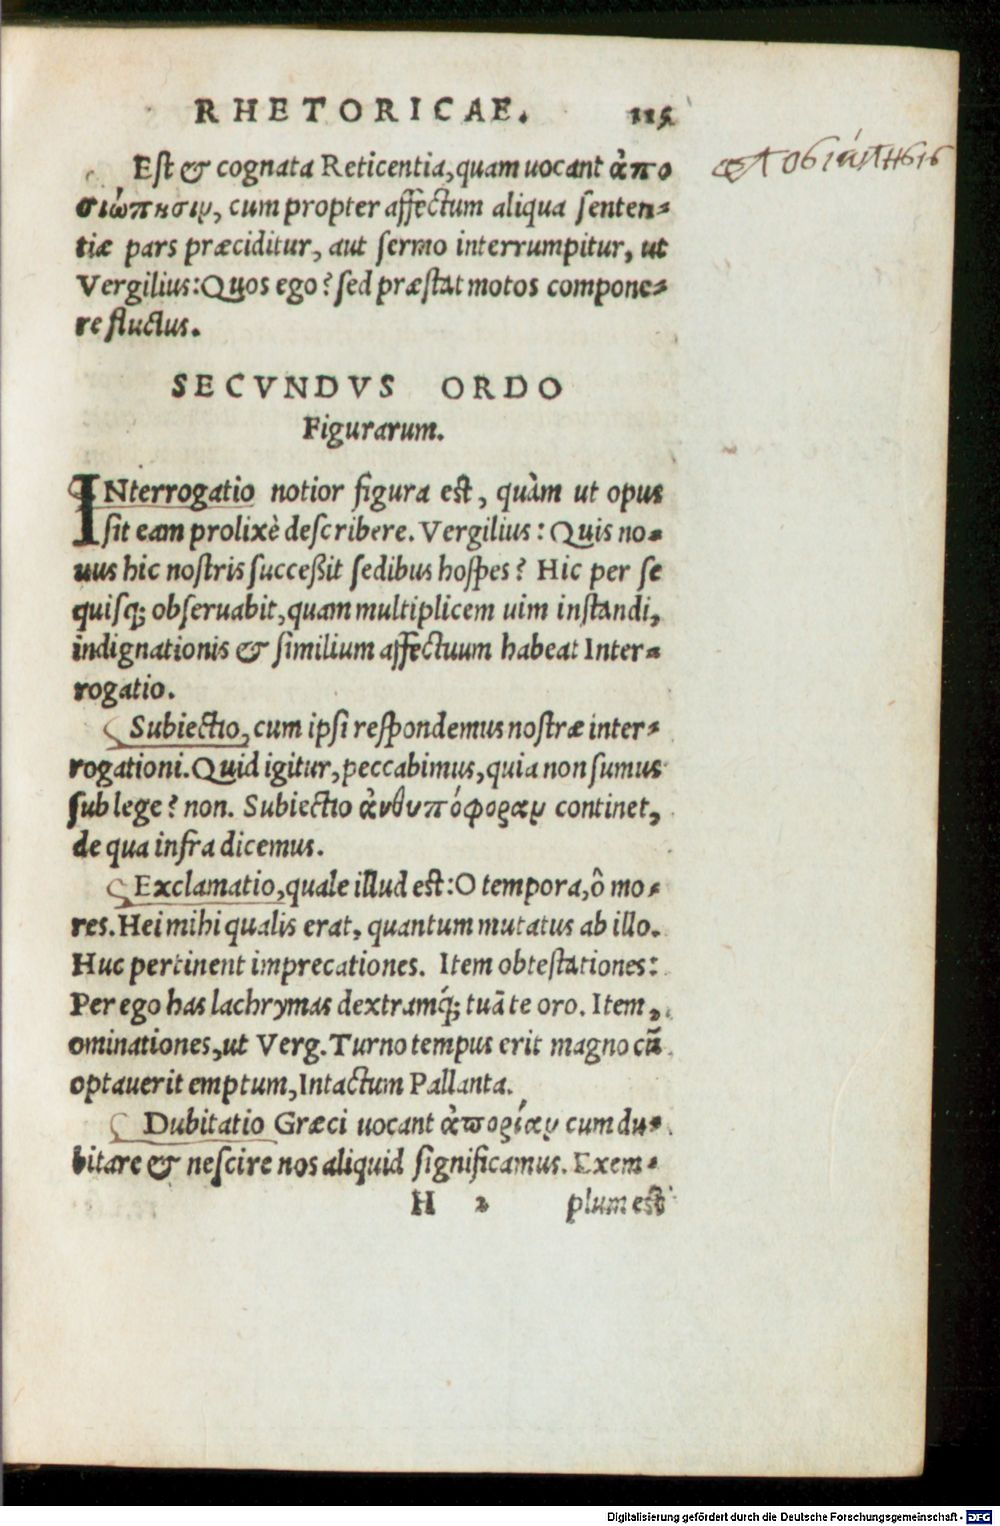 RHETORICAE. 115
Est & cognata Reticentia, quam uocant ἀπο
σιώπησιν, cum propter affectum aliqua senten-
tiæ pars præciditur, aut sermo interrumpitur, ut
Vergilius: Quos ego? sed præstat motos compone-
re fluctus.
SECVNDVS ORDO
Figurarum.
INterrogatio notior figura est, quàm ut opus
sit eam prolixè describere. Vergilius: Quis no-
uus hic nostris succeßit sedibus hospes? Hic per se
quisq; obseruabit, quam multiplicem uim instandi,
indignationis & similium affectuum habeat Inter-
rogatio.
Subiectio, cum ipsi respondemus nostræ inter-
rogationi. Quid igitur, peccabimus, quia non sumus
sub lege? non. Subiectio ἀνθυπόφοραν continet,
de qua infra dicemus.
Exclamatio, quale illud est: O tempora, ô mo-
res. Hei mihi qualis erat, quantum mutatus ab illo.
Huc pertinent imprecationes. Item obtestationes:
Per ego has lachrymas dextramq́; tuā te oro. Item,
ominationes, ut Verg. Turno tempus erit magno cū
optauerit emptum, Intactum Pallanta.
Dubitatio Græci uocant ἀπορίαν cum du-
bitare & nescire nos aliquid significamus. Exem-
H 2 plum est
Digitalisierung gefördert durch die Deutsche Forschungsgemeinschaft - DFG